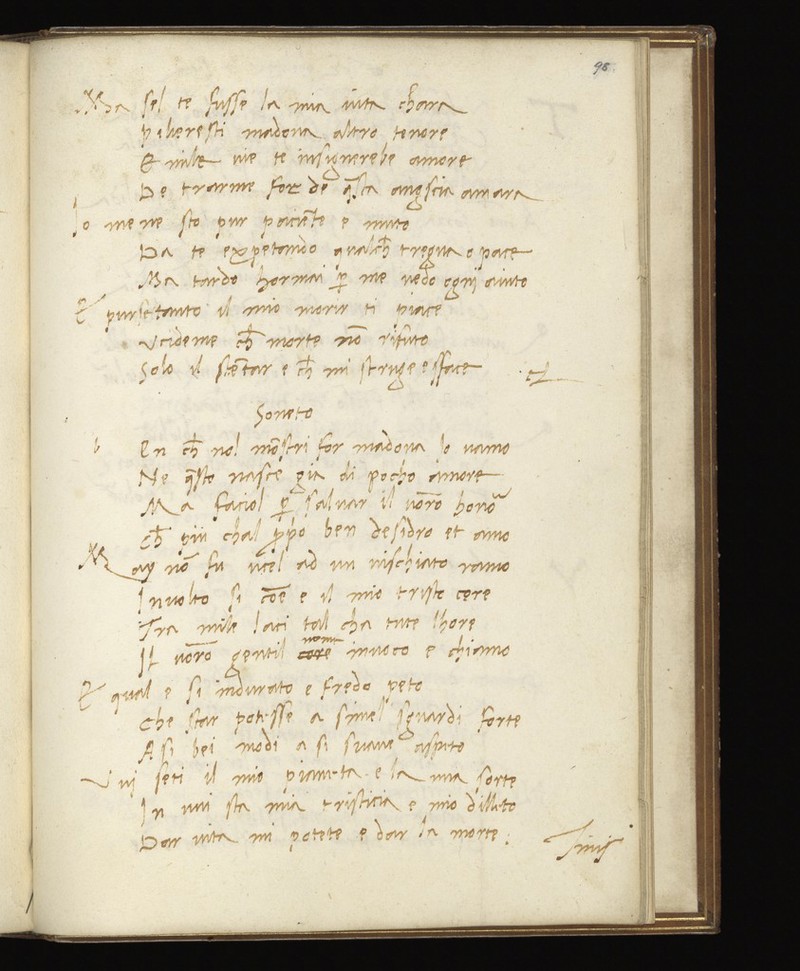 98
Ma sel te fusse la mia uita chara
piheresti madona altro tenore
E mille uie te insignerebe amore
De trarme for de q̃sta angscia amara
Io me ne sto pur paciẽte e muto
Da te expetando qualch̃ tregua o pace
Ma tardo hormai ꝑ me uedo ogni aiuto
E pur se tanto il mio morir ti piace
Ucideme ch̃ morte nõ rifiuto
Solo il stẽtar e ch̃ mi struge e sface
Soneto
En ch̃ nol mõstri for madona Io uamo
Ne q̃sto nasce gia di pocho amore
Ma faciol ꝑ saluar il uõro honõ
Ch̃ più chal ꝓpó ben desidro et amo
May nõ fu ucel ad un uischiato ramo
Inuolto si cõe e il mio tristo core
Tra mile laci tal cha tute lhore
Il uõro gentil nome inuoco e chiamo
E qual e si indurato e fredo peto
Che star potesse a simel sguardi forte
A si bei modi a si suaue aspeto
Vui seti il mio pianeta e la mia sorte
In uui sta mia tristicia e mio dilleto
Dar uita mi potete e dar la morte:
Finis